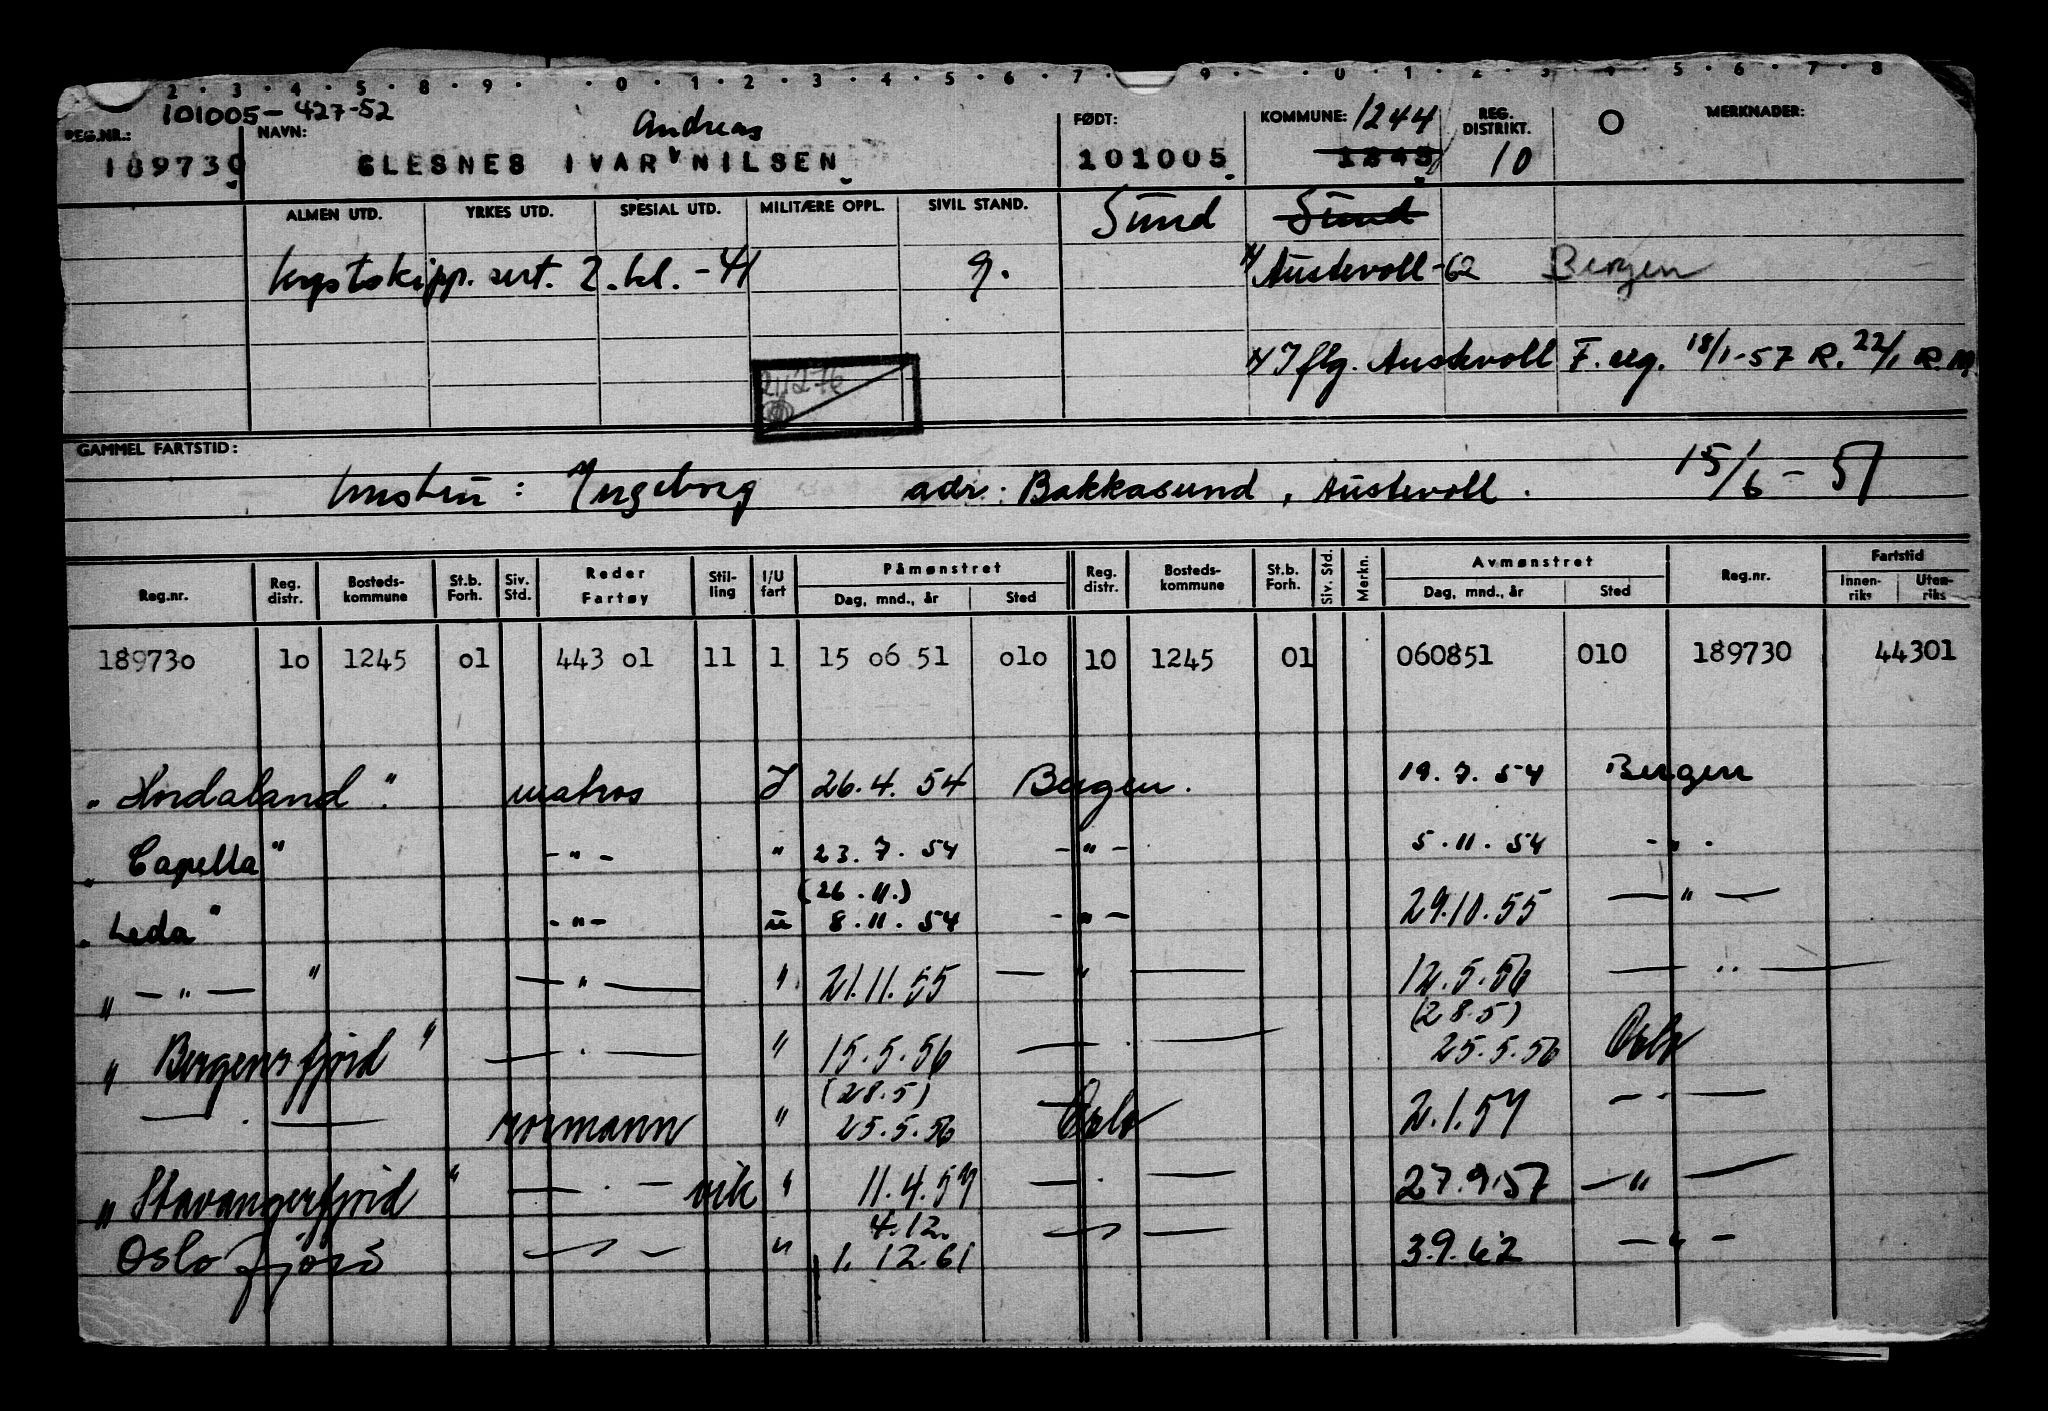 2 · 3 · 4 · 5 · 8 · 9 · · 0 · 1 · 2 · 3 · 4 · 5 · 6 · 7 · 9 · · 0 · 1 · 2 · 3 · 4 · 5 · 6 · 7 · 8
101005-427-52
REG.NR.: NAVN: Andreas FØDT: KOMMUNE: 1244 REG. DISTRIKT. O MERKNADER:
189730 GLESNES IVAR NILSEN 101005 1245 10
ALMEN UTD. YRKES UTD. SPESIAL UTD. MILITÆRE OPPL. SIVIL STAND. Sund Sund
kystskipp. sert. 2. kl. -41 g. Austevoll -62 Bergen
I flg. Austevoll F. reg. 18/1-57 R. 22/1
GAMMEL FARTSTID:
hustru: Ingeborg adr: Bakkasund, Austevoll. 15/6 - 51
Reg.nr. Reg. distr. Bosteds- kommune St.b. Forh. Siv. Std. Reder Fartøy Stil- ling I/U fart Påmønstret Dag, mnd., år Sted Reg. distr. Bosteds- kommune St.b. Forh. Siv. Std. Merkn. Avmønstret Dag, mnd., år Sted Reg.nr. Fartstid Innen- riks Uten- riks
189730 10 1245 01 443 01 11 1 15 06 51 010 10 1245 01 060851 010 189730 44301
"Hordaland". matros I 26.4.54 Bergen. 19.7.54 Bergen
"Capella" -"- " 23.7.54 -"- 5.11.54 -"-
(26.11.)
"Leda" -"- u 8.11.54 -"- 29.10.55 -"-
"-"-" -"- " 21.11.55 -"- 12.5.56 -"-
(28.5)
"Bergensfjord" -"- " 15.5.56 -"- 25.5.56 Oslo
(28.5)
-"- rormann " 25.5.56 Oslo 2.1.57 -"-
"Stavangerfjord" -"- vik " 11.4.57 -"- 27.9.57 -"-
4.12.
Oslofjord -"- " 1.12.61 -"- 3.9.62 -"-